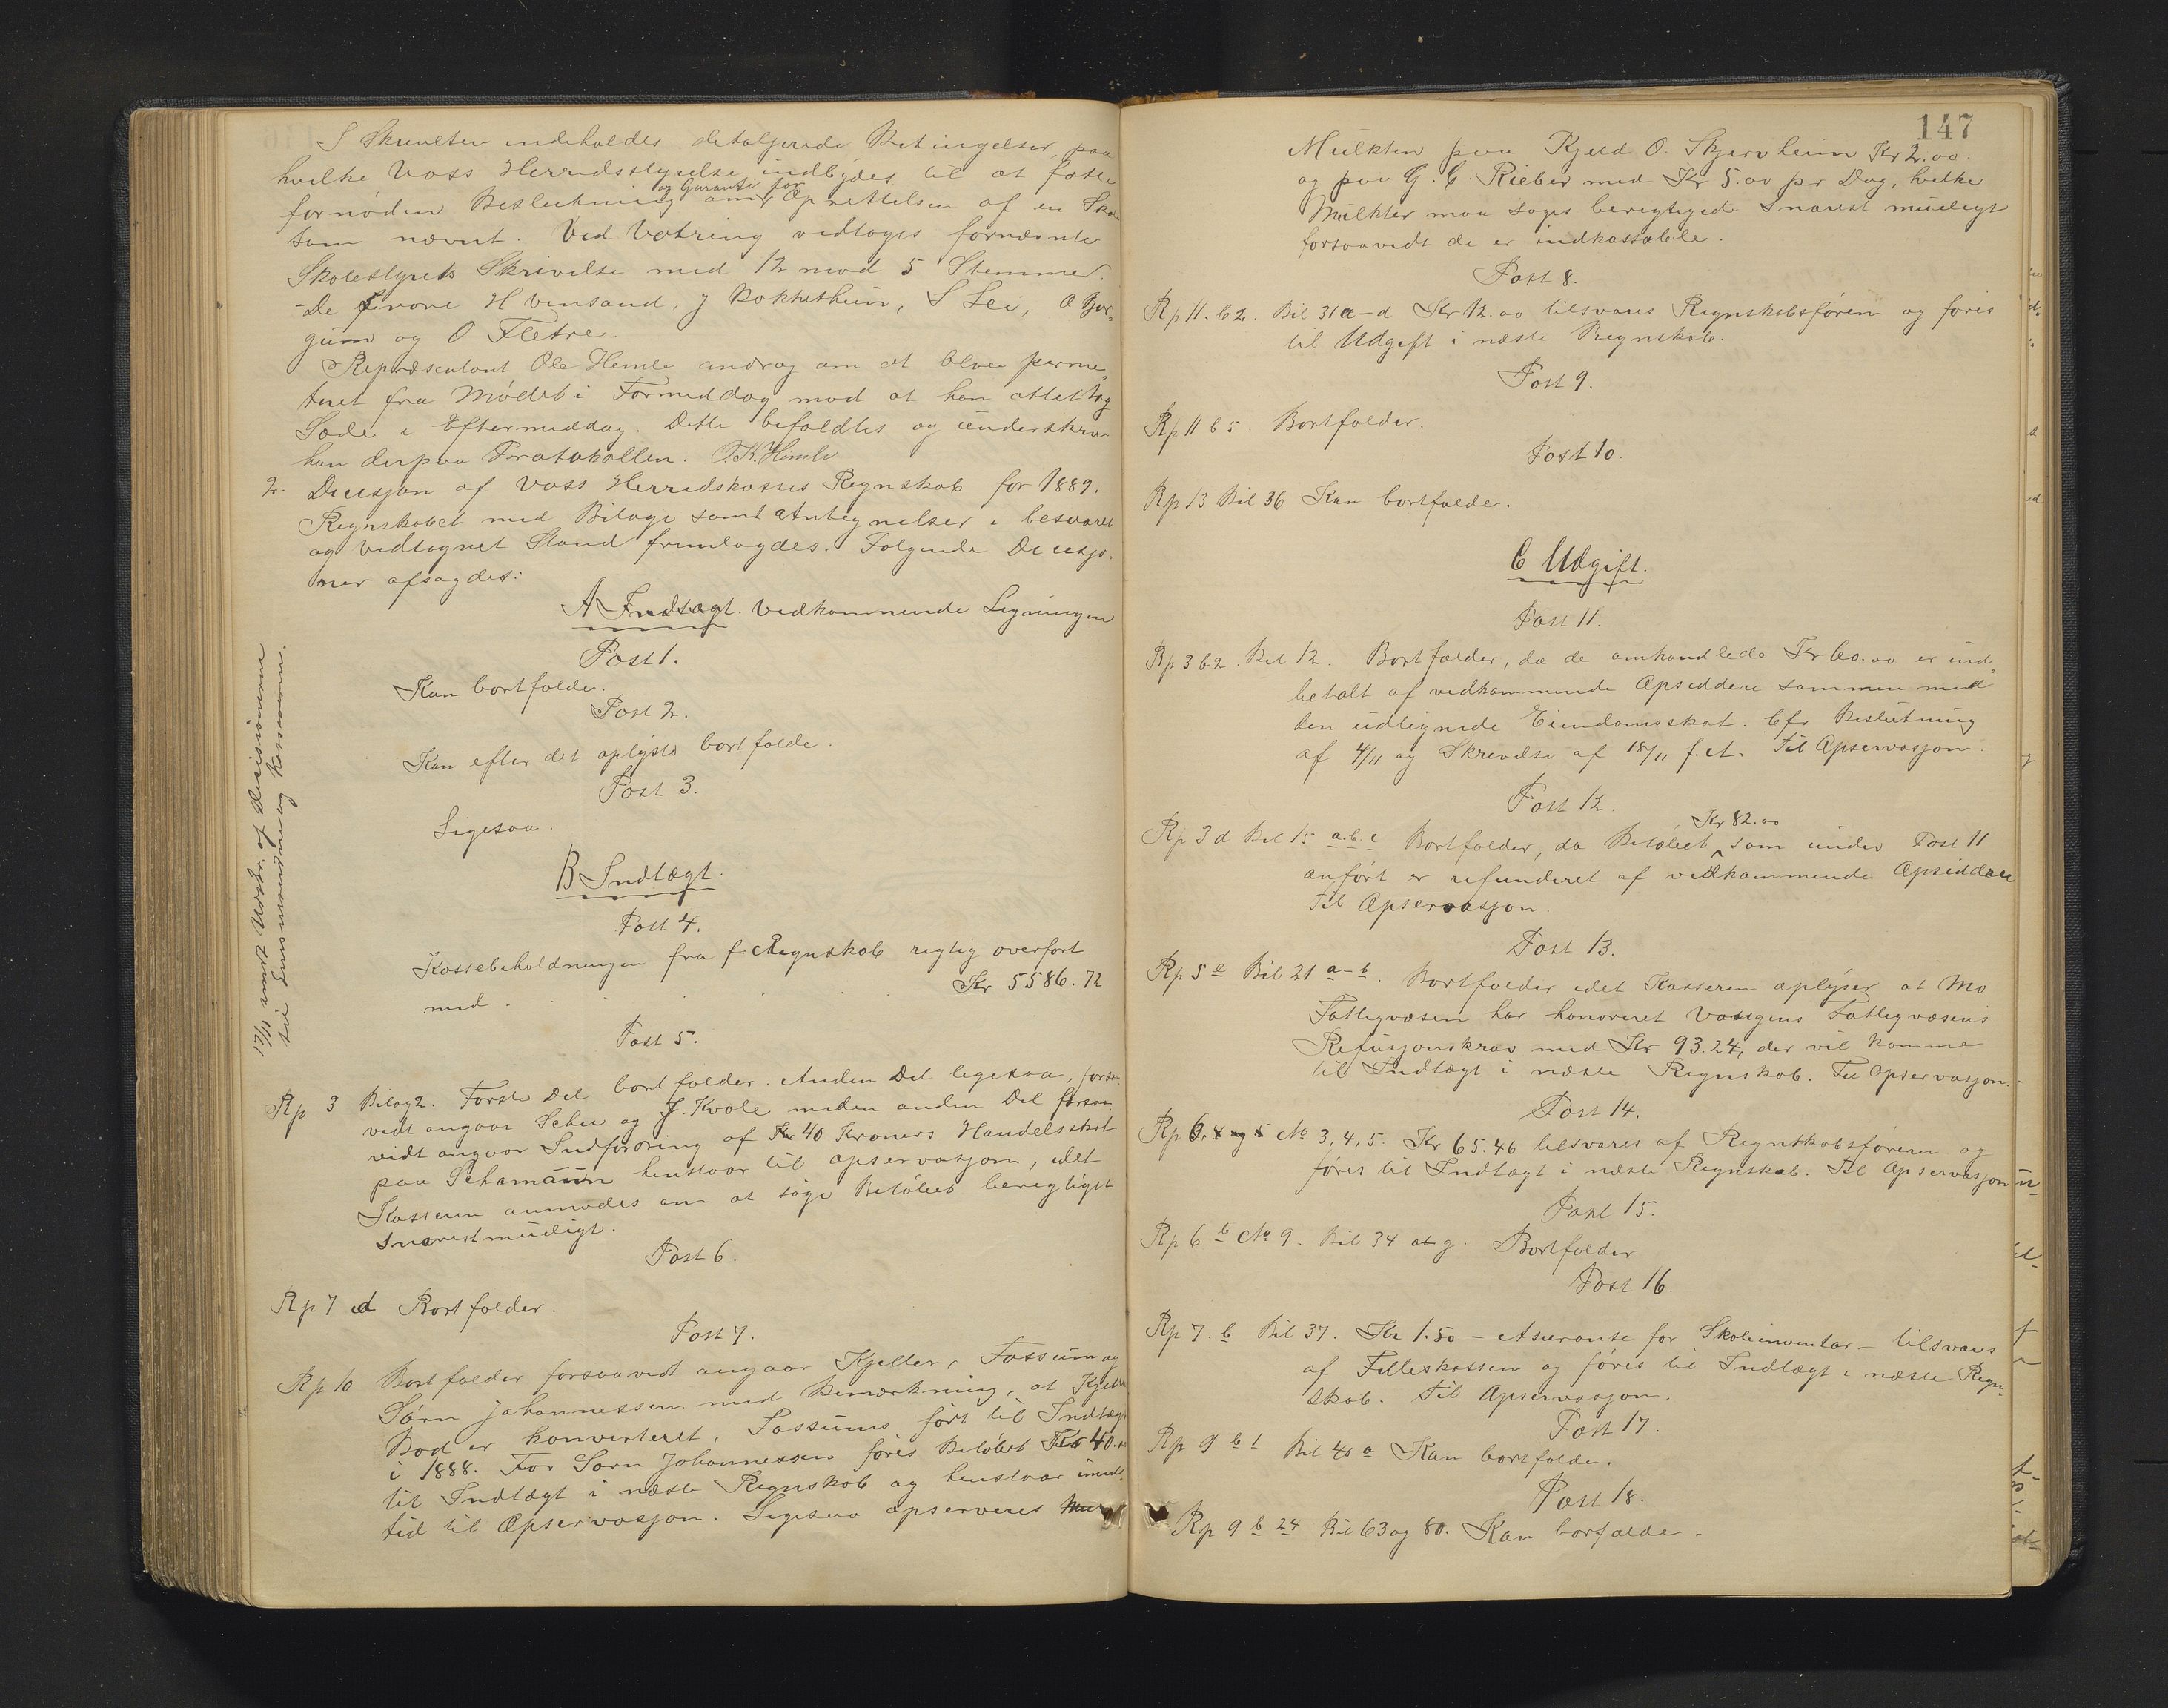 I Skrivelsen indeholdes detaljerede Betingelser, paa
hvilke Voss Herredsstyrelse indbydes til at fatte
og Garanti for
fornøden Beslutning om Oprettelsen af en Skole
som nævnt. Ved Votring vedtoges fornævnte
Skolestyrets Skrivelse med 12 mod 5 Stemmer.
- De 5 vare H Vinsand, J Rokkethun, S Lei, O Gjer-
gum og O Fletre.
Repræsentant Ole Himle androg om at blive perme-
teret fra Mødet i Formiddag mod at han atter tog
Sæde i Eftermiddag. Dette bifaldtes og underskrev
han derpaa Protokollen. O.K. Himle
2. Decisjon af Voss Herredskasses Regnskab for 1889.
Regnskabet med Bilage samt Antegnelser i besvaret
og vedtegnet Stand fremlagdes. Følgende Decisjo-
ner afsagdes:
A Indtægt. vedkommende Ligningen
Post 1.
Kan bortfalde.
Post 2.
Kan efter det oplyste bortfalde.
Post 3.
Ligesaa.
B Indtægt.
Post 4.
Kassebeholdningen fra f. A Regnskab rigtig overført
med . . . . . Kr 5586.72
Post 5.
Rp 3 Bilag 2. Første Del bortfalder. Anden Del ligesaa, forsaa-
vidt angaar Schee og J. Kvale meden anden Del forsaa-
vidt angaar Indfordring af Kr 40 Kroners Handelsskat
paa Schamaun henstaar til Opservasjon, idet
Kasseren anmodes om at søge Beløbet berigtiget
snarest muligt.
Post 6.
Rp 7 d Bortfalder.
Post 7.
Rp 10 Bortfalder forsaavidt angaar Kjeller, Fossum og
Sørn Johannessen med Bemærkning, at Kjellers
Bod er konverteret, Fossums ført til Indtægt
i 1888. For Sørn Johannessen føres Beløbet Kr 40.00
til Indtægt i næste Regnskab og henstaar imid-
tid til Opservasjon. Ligesaa opserveres Mu
17/11 sendt Udskr. af Decisionerne
til Lensmanden og Kasseren.
147
Mulkten paa Kjeld O. Skjervheim Kr 2.00
og paa G. C. Rieber med Kr 5.00 pr Dag, hvilke
Mulkter maa søges berigtigede snarest muligt
forsaavidt de er indkassable.
Post 8.
Rp 11. b2. Bil 31a-d Kr 12.00 tilsvares Regnskabsføreren og føres
til Udgift i næste Regnskab.
Post 9.
Rp 11 b 5. Bortfalder.
Post 10.
Rp 13 Bil 36 Kan bortfalde.
C Udgift.
Post 11.
Rp 3 b2. Bil 12. Bortfalder, da de omhandlede Kr 60.00 er ind-
betalt af vedkommende Opsiddere sammen med
den udlignede Eiendomsskat. Cfr Beslutning
af 4/11 og Skrivelse af 18/11 f. A. Til Opservasjon.
Post 12.
Kr 82.00
Rp 3 d Bil 15 a.b.c Bortfalder, da Beløbet som under Post 11
anført er refunderet af vedkommende Opsiddere
Til Opservasjon.
Post 13.
Rp 5 e Bil 21 a-b. Bortfalder idet Kasseren oplyser at Mo
Fattigvæsen har honoreret Vangens Fattigvæsens
Refusjonskrav med Kr 93.24, der vil komme
til Indtægt i næste Regnskab. Til Opservasjon.
Post 14.
Rp 6. 4 og 5 No 3, 4, 5. Kr 65.46 tilsvares af Regnskabsføreren og
føres til Indtægt i næste Regnskab. Til Opservasjon
Post 15.
Rp 6 b No 9. Bil 34 g. Bortfalder
Post 16.
Rp 7. b Bil 37. Kr 1.50 - Asuranse for Skoleinventar - tilsvares
af Filleskassen og føres til Indtægt i næste Regn-
skab. Til Opservasjon.
Post 17.
Rp 9 b 1 Bil 40 a Kan bortfalde.
Post 18.
Rp 9 b 24 Bil 63 og 80. Kan borfalde.